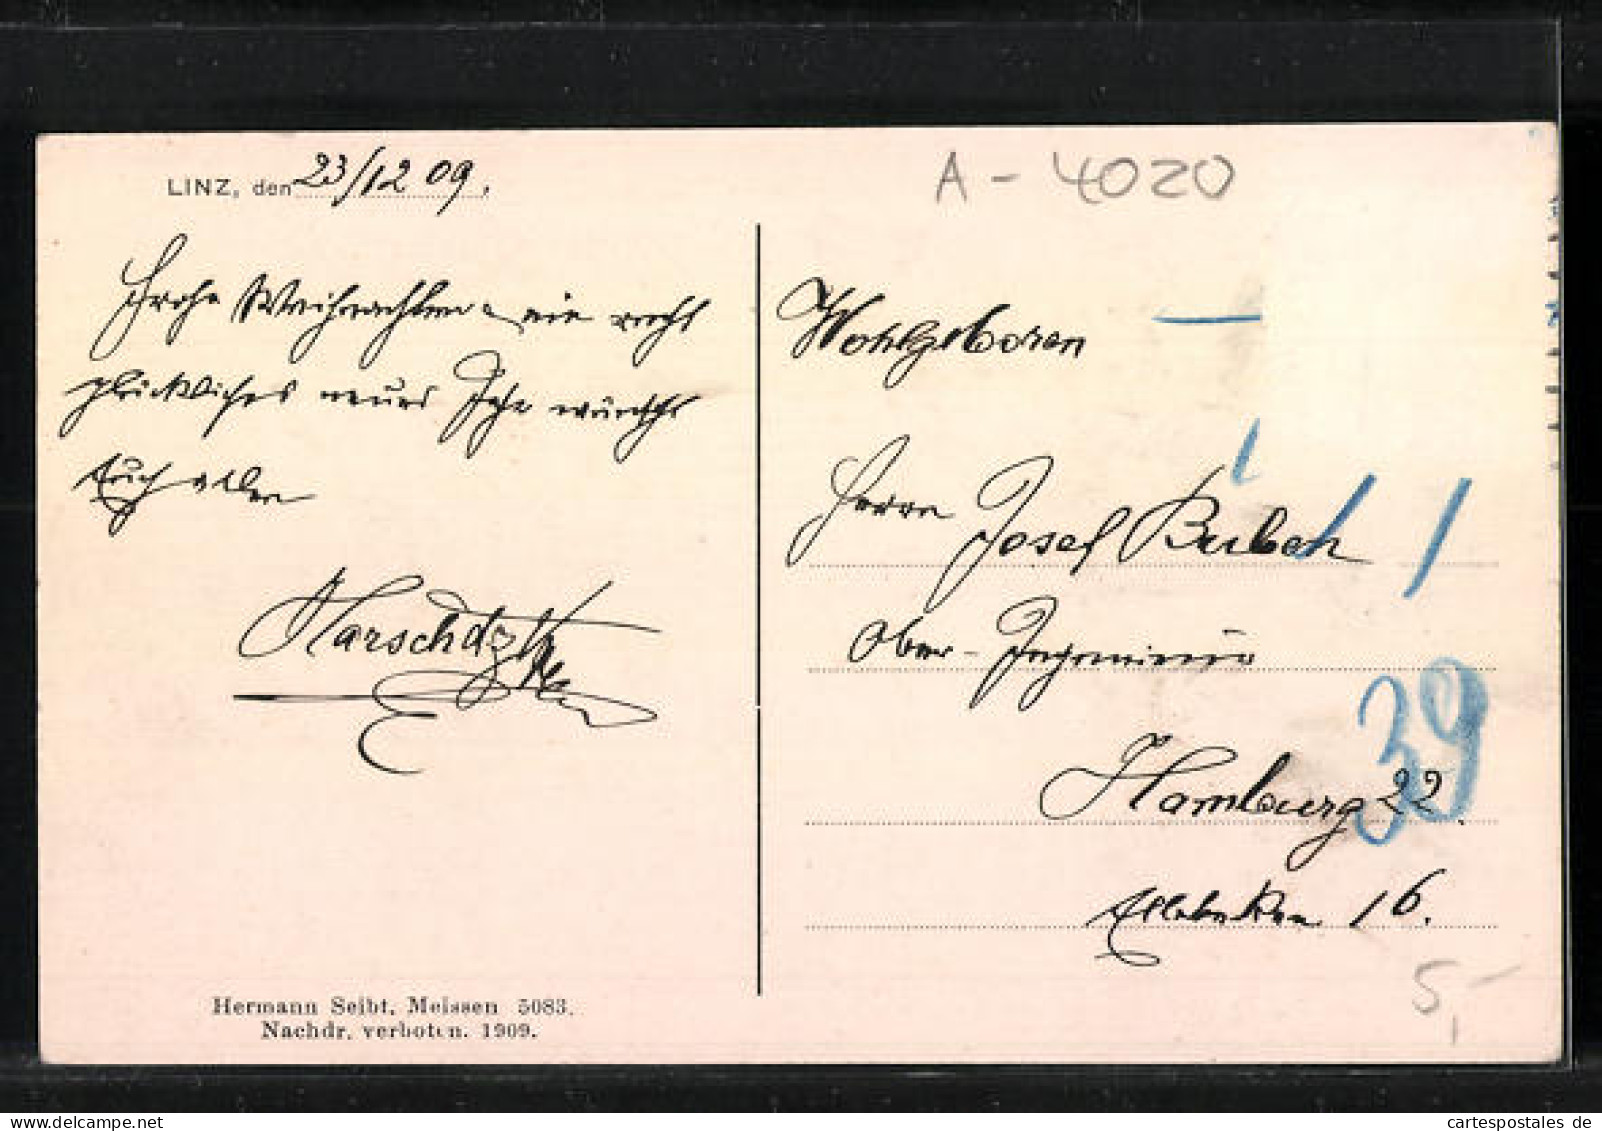 LINZ, den 23/12 09.
Frohe Weihnachten u. ein recht
glückliches neues Jahr wünscht
Euch allen
A - 4020
Wohlgeboren
Herrn Josef
Ober-Ingenieur
Hamburg 22.
39
Ellebeken 16.
5,-
Hermann Seibt, Meissen 5083.
Nachdr. verboten. 1909.
cartespostales.de